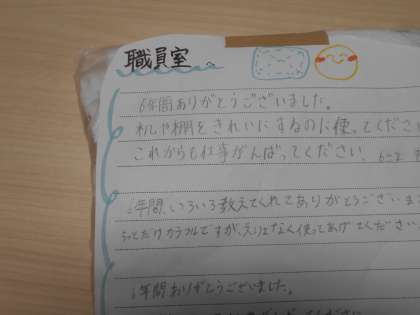 職員室へ
6年間ありがとうございました。
机や棚をきれいにするのに使ってくださ
これからも仕事がんばってください。
6年間、いろいろ教えてくれてありがとうございま
ちょっとだけカラフルですが、えんりょなく使ってあげてください
6年間ありがとうございました。